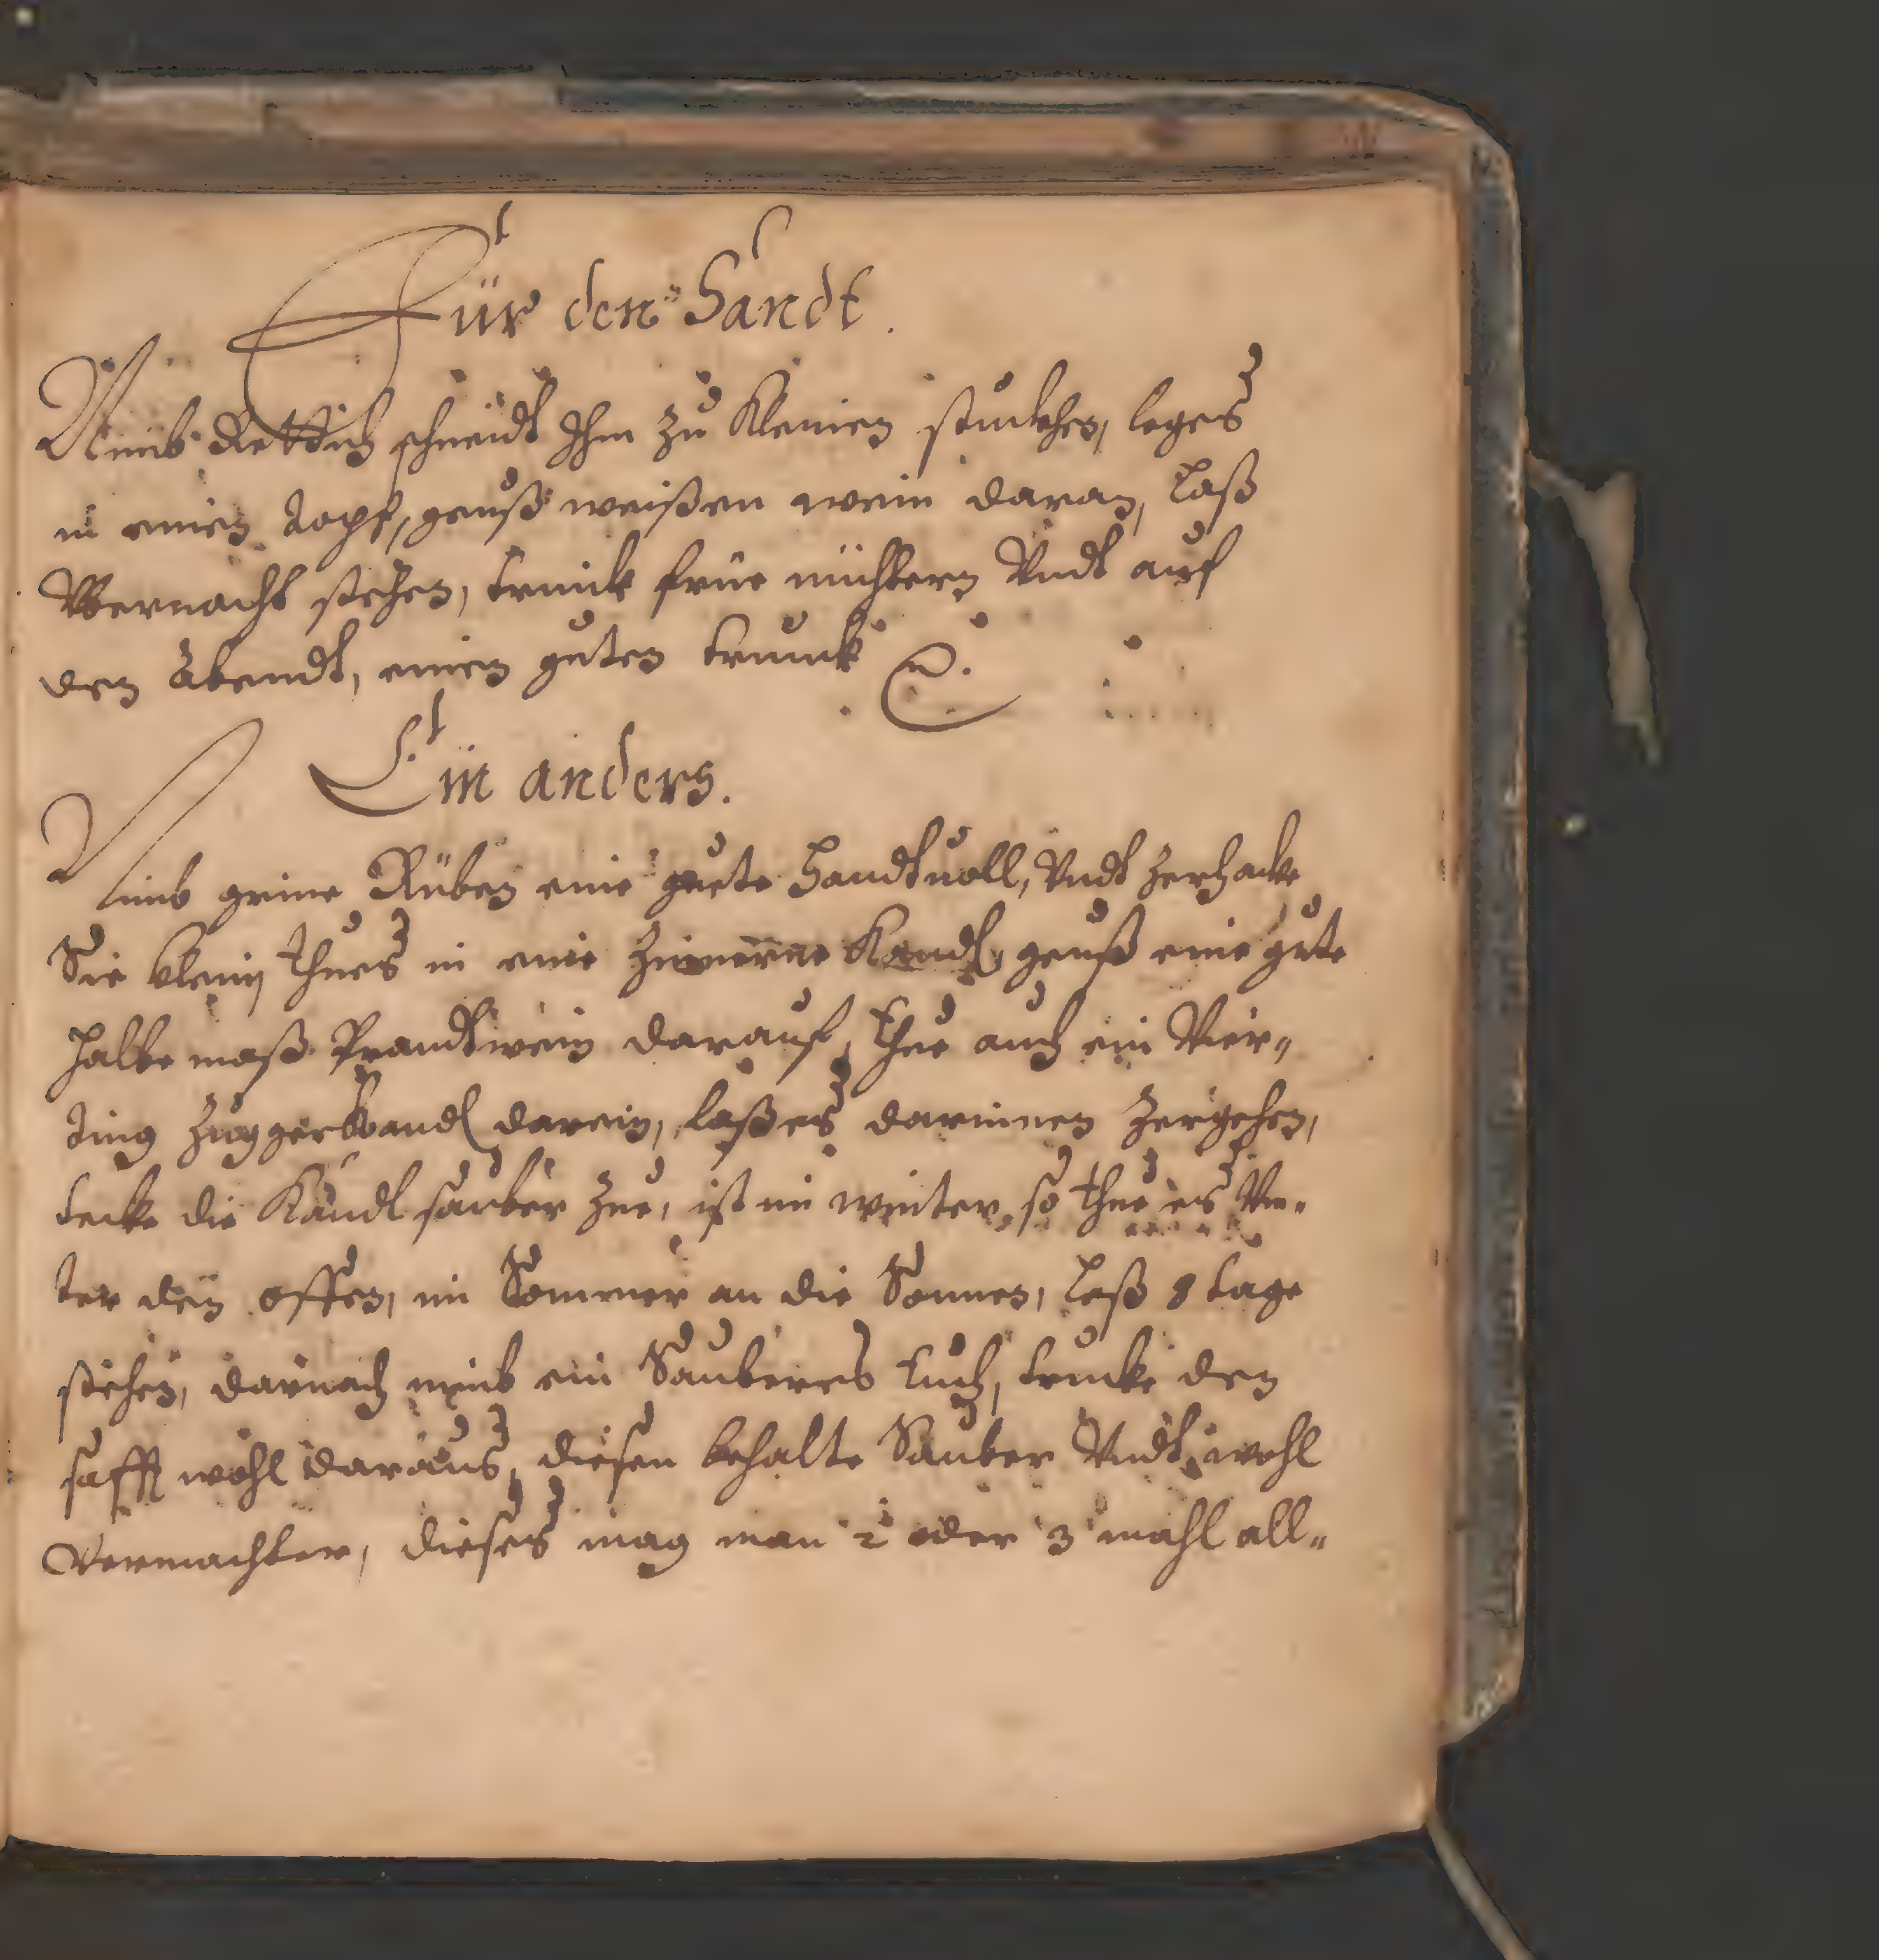 Für den Sandt.
Nimb Rettich schneidt Ihm zu kleinen stuckhen, leges
in einen topf, geuß weißen wein daran, laß
Vbernacht stehen, trinck früe nüchtern Vndt auf
den Abendt, einen guten trunck
Ein anders.
Nimb grüne Rüben eine guete Handtuoll, Vndt zerhacke
Sie klein thues in eine zinnerne Kandl, geuß eine gute
halbe maß Prandtwein darauf, thue auch ein Vier„
ting Zuggerkandl darein, laß es darinnen zergehen,
decke die Kandl sauber zue, ist im winter, so thue es Vn„
ter den offen, im Sommer an die Sonnen, laß 8 tage
stehen, darnach nimb ein Sauberes tuch, trucke den
safft wohl daraus, diesen behalte Sauber Vndt wohl
Vermachter, dieses mag man 2 oder 3 mahl all„